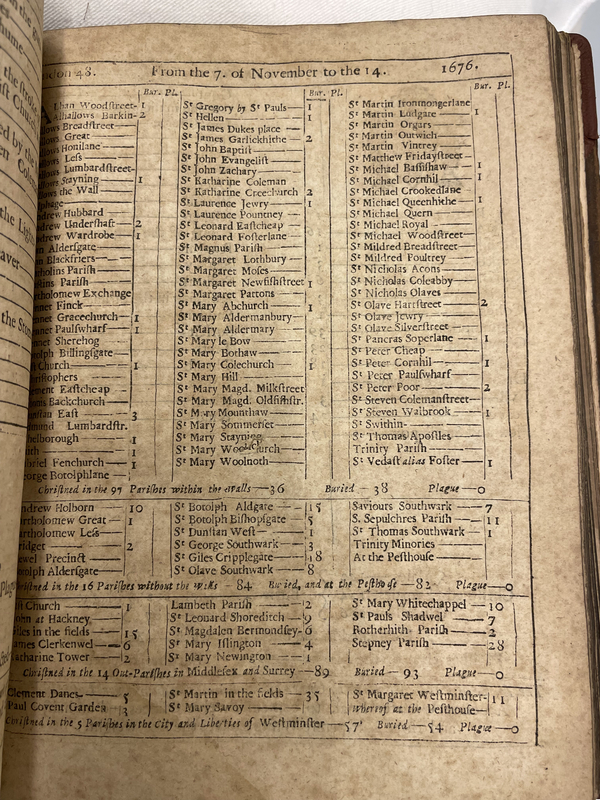 48. From the 7. of November to the 14. 1676.
Bur. Pl. Bur. Pl. Bur. Pl.
lban Woodſtreet- 1 Sᵗ Gregory by Sᵗ Pauls— 1 Sᵗ Martin Ironmongerlane
lhallows Barkin- 2 Sᵗ Hellen — 1 Sᵗ Martin Ludgate — 1
lows Breadſtreet— Sᵗ James Dukes place — Sᵗ Martin Orgars —
lows Great — Sᵗ James Garlickhithe — 2 Sᵗ Martin Outwich —
lows Honilane — Sᵗ John Baptiſt — Sᵗ Martin Vintrey —
lows Leſs — Sᵗ John Evangeliſt — Sᵗ Matthew Fridayſtreet—
lows Lumbardſtreet- Sᵗ John Zachary — Sᵗ Michael Baſſiſhaw — 1
lows Stayning — 1 Sᵗ Katharine Coleman Sᵗ Michael Cornhil — 1
lows the Wall — Sᵗ Katharine Creechurch 2 Sᵗ Michael Crookedlane
phage — Sᵗ Laurence Jewry — 1 Sᵗ Michael Queenhithe 1
drew Hubbard Sᵗ Laurence Pountney — Sᵗ Michael Quern
drew Underſhaft— 2 Sᵗ Leonard Eaſtcheap Sᵗ Michael Royal —
drew Wardrobe— 1 Sᵗ Leonard Foſterlane Sᵗ Michael Woodſtreet—
n Alderſgate— Sᵗ Magnus Pariſh — Sᵗ Mildred Breadſtreet—
n Blackfriers— Sᵗ Margaret Lothbury — Sᵗ Mildred Poultrey
tholins Pariſh — Sᵗ Margaret Moſes — Sᵗ Nicholas Acons —
ſtins Pariſh — Sᵗ Margaret Newfiſhſtreet 1 Sᵗ Nicholas Coleabby
tholomew Exchange Sᵗ Margaret Pattons — Sᵗ Nicholas Olaves —
nnet Finck — Sᵗ Mary Abchurch — 1 Sᵗ Olave Hartſtreet — 2
nnet Gracechurch — 1 Sᵗ Mary Aldermanbury— Sᵗ Olave Jewry —
nnet Paulſwharf — 1 Sᵗ Mary Aldermary — Sᵗ Olave Silverſtreet —
nnet Sherehog Sᵗ Mary le Bow — Sᵗ Pancras Soperlane — 1
tolph Billingſgate— Sᵗ Mary Bothaw — Sᵗ Peter Cheap —
Church — 1 Sᵗ Mary Colechurch — 1 Sᵗ Peter Cornhil — 1
ſtophers Sᵗ Mary Hill — Sᵗ Peter Paulſwharf —
ement Eaſtcheap Sᵗ Mary Magd. Milkſtreet Sᵗ Peter Poor — 2
Backchurch — Sᵗ Mary Magd. Oldfiſhſtr. Sᵗ Steven Colemanſtreet—
nſtan Eaſt — 3 Sᵗ Mary Mounthaw — Sᵗ Steven Walbrook — 1
dmund Lumbardſtr. Sᵗ Mary Sommerſet — Sᵗ Swithin—
helborough — 1 Sᵗ Mary Stayning — Sᵗ Thomas Apoſtles —
ith — 1 Sᵗ Mary Woolchurch — Trinity Pariſh —
briel Fenchurch — 1 Sᵗ Mary Woolnoth — Sᵗ Vedaſt alias Foſter — 1
eorge Botolphlane —
Chriſtned in the 97 Pariſhes within the walls —36 Buried — 38 Plague —0
ndrew Holborn — 10 Sᵗ Botolph Aldgate — 15 Saviours Southwark — 7
rtholomew Great — 1 Sᵗ Botolph Biſhopſgate— 5 S. Sepulchres Pariſh — 11
rtholomew Leſs— Sᵗ Dunſtan Weſt — 1 Sᵗ Thomas Southwark 1
ridget — 2 Sᵗ George Southwark — 3 Trinity Minories —
ewel Precinct — Sᵗ Giles Cripplegate— 18 At the Peſthouſe—
tolph Alderſgate— Sᵗ Olave Southwark — 8
riſtned in the 16 Pariſhes without the walls — 84 Buried, and at the Peſthouſe — 82 Plague—0
ſt Church — 1 Lambeth Pariſh — 2 Sᵗ Mary Whitechappel — 10
ohn at Hackney, Sᵗ Leonard Shoreditch — 9 Sᵗ Pauls Shadwel — 7
iles in the fields — 15 Sᵗ Magdalen Bermondſey- 6 Rotherhith Pariſh — 2
ames Clerkenwel — 6 Sᵗ Mary Iſlington — 4 Stepney Pariſh — 28
atharine Tower — 2 Sᵗ Mary Newington — 1
Chriſtned in the 14 Out-Pariſhes in Middleſex and Surrey —89 Buried — 93 Plague —0
Clement Danes— 5 Sᵗ Martin in the fields — 35 Sᵗ Margaret Weſtminſter- 11
Paul Covent Garden 3 Sᵗ Mary Savoy — whereof at the Peſthouſe—
Chriſtned in the 5 Pariſhes in the City and Liberties of Weſtminſter —57 Buried — 54 Plague —0